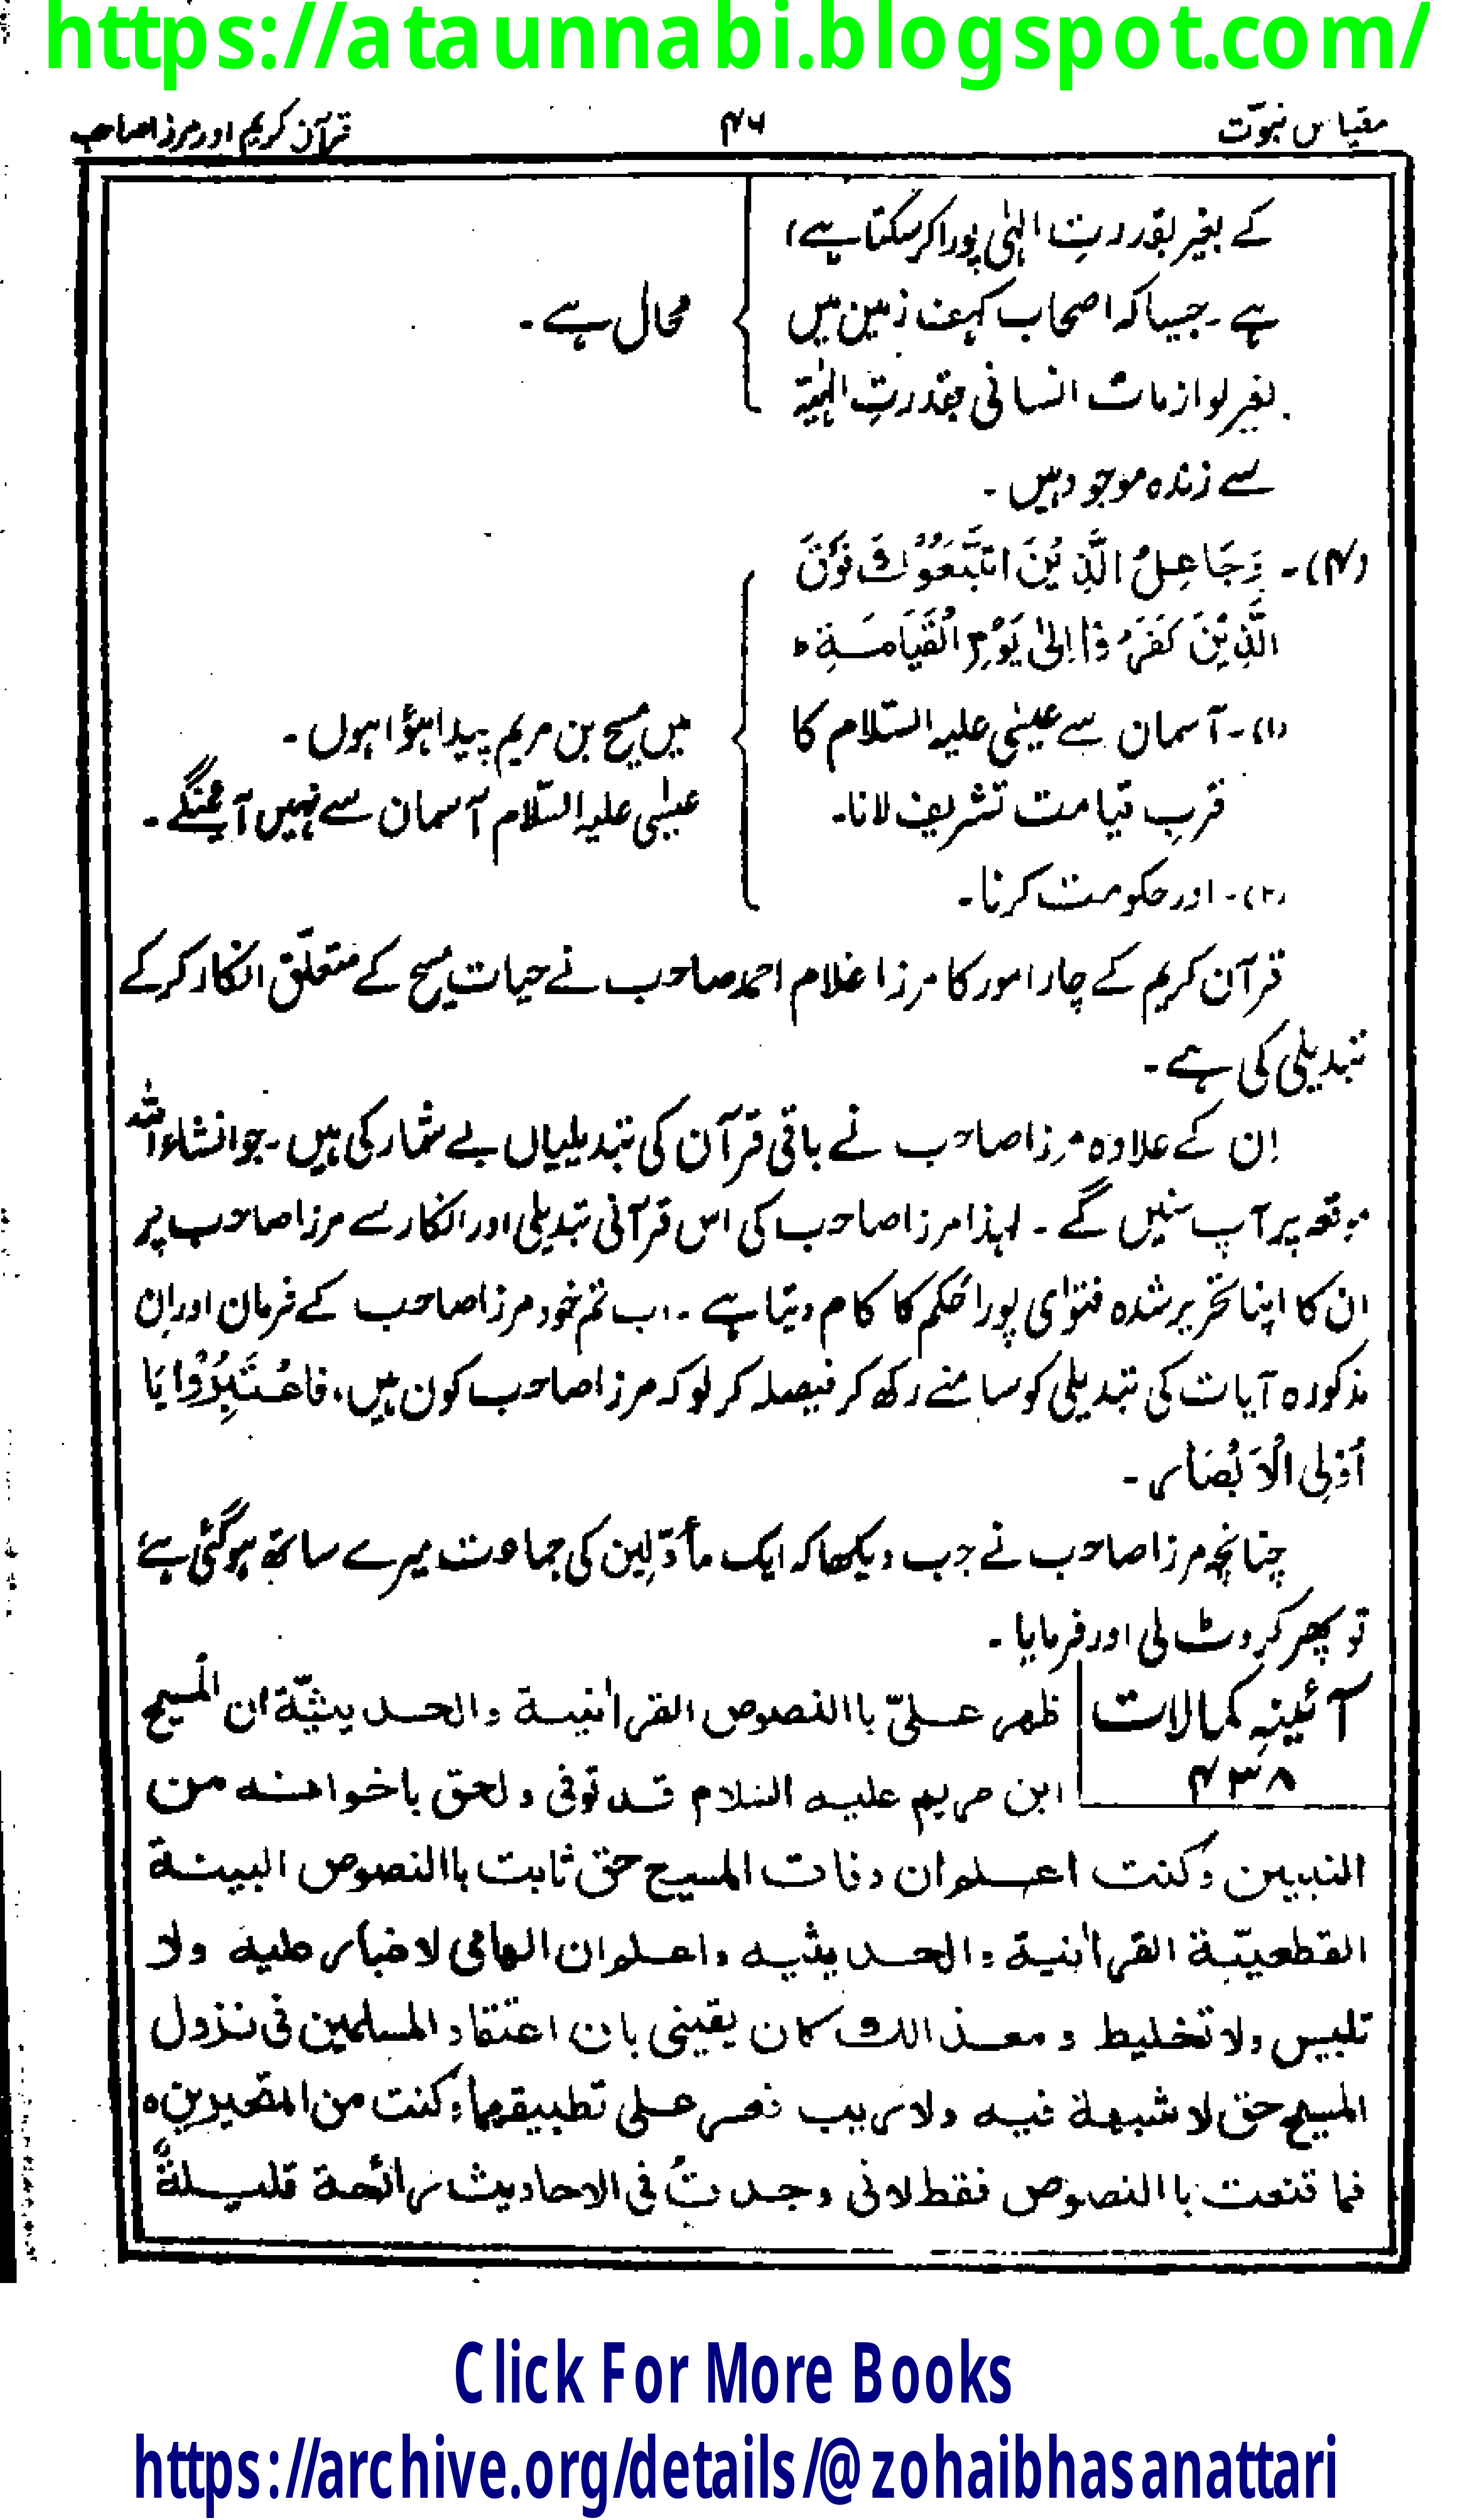 https://ataunnabi.blogspot.com/
مقیاس نبوّت
۴۶
قرآن کریم اور مرزا صاحب
کے بغیر بقدرتِ الہٰی پورا کر سکتا ہے)
ہے۔ جیسا کہ اصحاب کہف زمین میں
بغیر لوازمات انسانی بقدرتِ الہٰیّہ
سے زندہ موجود ہیں۔
محال ہے۔
(۴)۔ وَجَاعِلُ الَّذِیْنَ اتَّبَعُوْكَ فَوْقَ
الَّذِیْنَ كَفَرُوْا اِلیٰ یَوْمِ الْقِیَامَةِ ط
(۱)۔ آسمان سے عیسٰی علیہ السّلام کا
قرب قیامت تشریف لانا۔
(۲)۔ اور حکومت کرنا۔
میں مسیح بن مریم پیدا ہؤا ہوں۔
عیسٰی علیہ السّلام آسمان سے نہیں آئینگے۔
قرآن کریم کے چار امور کا مرزا غلام احمد صاحب نے حیات مسیح کے متعلّق انکار کر کے
تبدیلی کی ہے۔
اِن کے علاوہ مرزا صاحب نے باقی قرآن کی تبدیلیاں بے شمار کی ہیں۔ جو انشاء اللہ
موقعہ پر آپ سنیں گے۔ لہذا مرزا صاحب کی اس قرآنی تبدیلی اور انکار سے مرزا صاحب پر
ان کا اپنا تحریر شدہ فتوٰی پورا حُکم کا کام دیتا ہے۔ اب تم خود مرزا صاحب کے فرمان اور اِن
مذکورہ آیات کی تبدیلی کو سامنے رکھ کر فیصلہ کر لو کہ مرزا صاحب کون ہیں، فَاعْتَبِرُوْا یَا
اُوْلِی الْاَبْصَار۔
چنانچہ مرزا صاحب نے جب دیکھا کہ ایک مأوّلین کی جماعت میرے ساتھ ہو گئی ہے
تو پھر کروٹ لی اور فرمایا۔
آئینہِ کمالات
۴۳۸
ظهر علیّ باالنصوص القراٰنیة والحدیثیّة ان المسیح
ابن مریم علیه السلام قد توفی ولحق باخوانه من
النبیین وکنت اعلم ان وفات المسیح حق ثابت باالنصوص البینة
القطعیّة القراٰنیة والحدیثیه واعلم ان الهامی لاغبار علیه ولا
تلبیس ولا تخلیط ومعذالك کان یقینی بان اعتقاد المسلمین فی نزول
المسیح حق لا شبهة فیه ولاریب فعسر علی تطبیقهما وکنت من المتحیرین ه
فما قنعت باالنصوص فقط لانی وجدتُ فی الاحادیث رائحة قلیلةً
Click For More Books
https://archive.org/details/@zohaibhasanattari